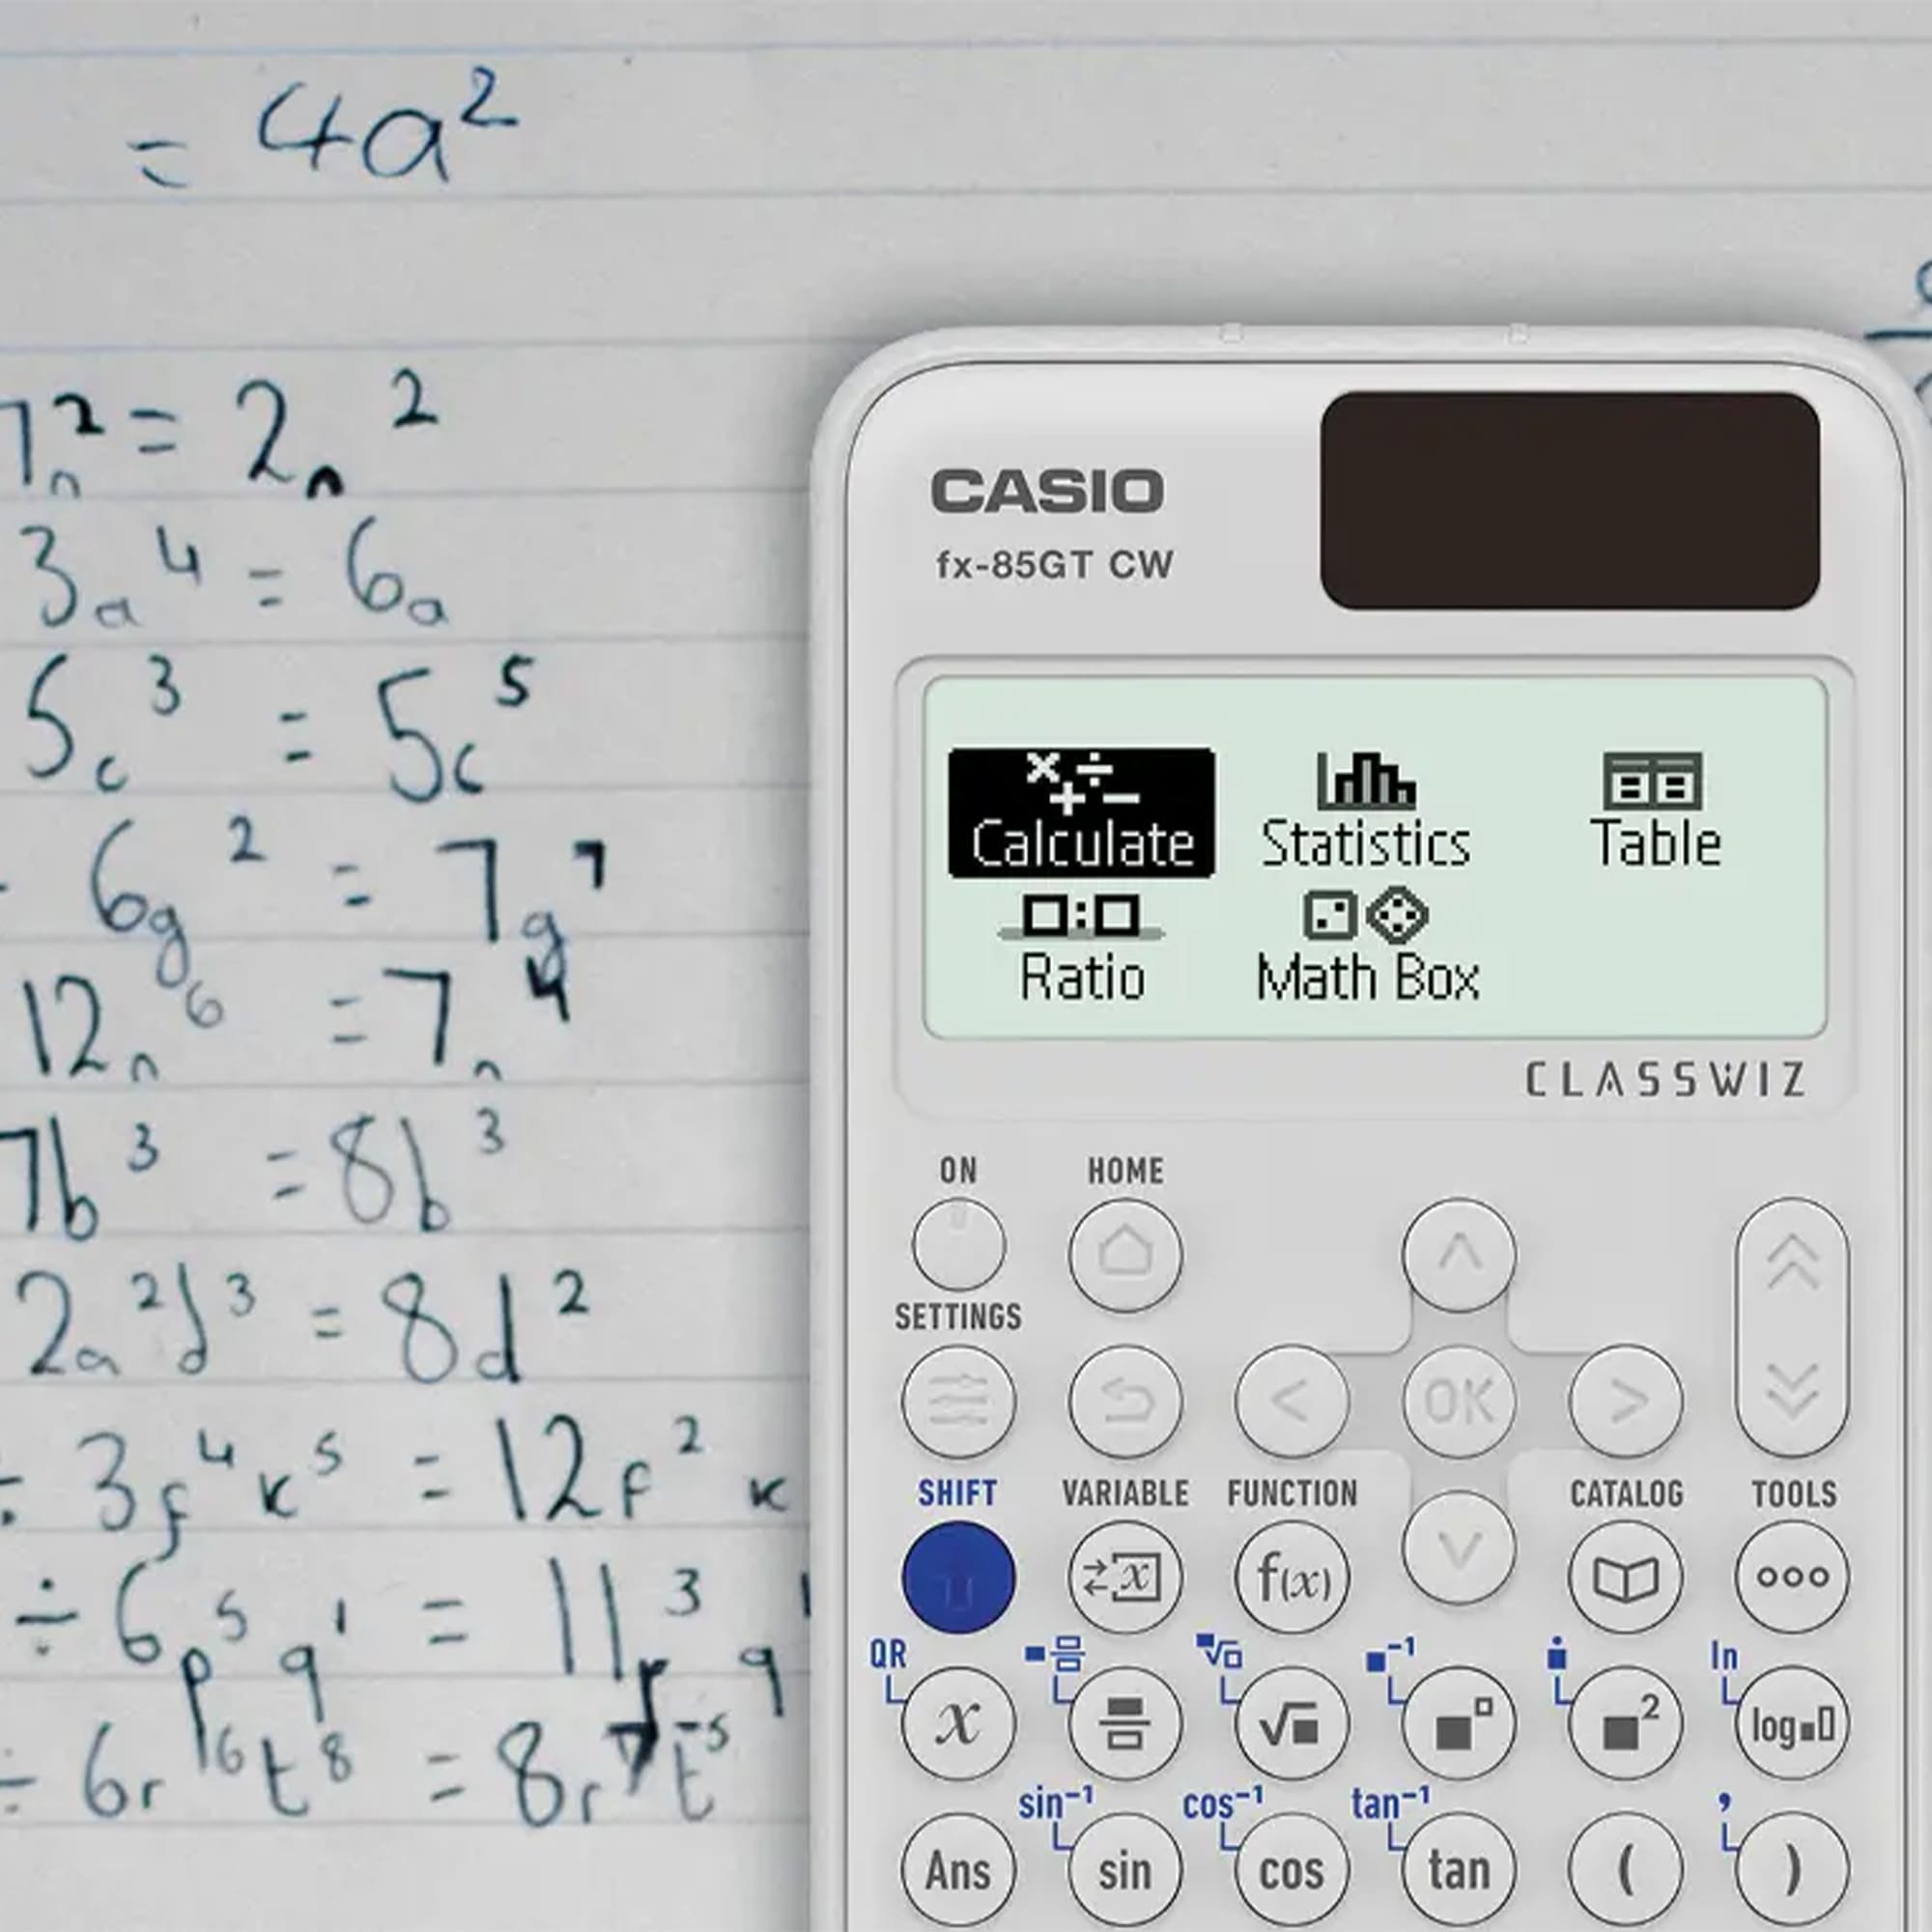 = 4a²
7n² = 2n²
3a⁴ = 6a
5c³ = 5c⁵
6g² = 7g⁷
12n⁶ = 7n⁴
7b³ = 8b³
2a²d³ = 8d²
÷ 3f⁴k⁵ = 12f²k
÷ 6p⁵q¹ = 11p³q¹
÷ 6r¹⁶t⁸ = 8r⁷t⁻⁵
CASIO
fx-85GT CW
Calculate Statistics Table
Ratio Math Box
CLASSWIZ
ON HOME
SETTINGS
OK
SHIFT VARIABLE FUNCTION CATALOG TOOLS
x f(x)
QR ■⁻¹ i ln
x √■ ■² log■□
sin⁻¹ cos⁻¹ tan⁻¹ ,
Ans sin cos tan ( )